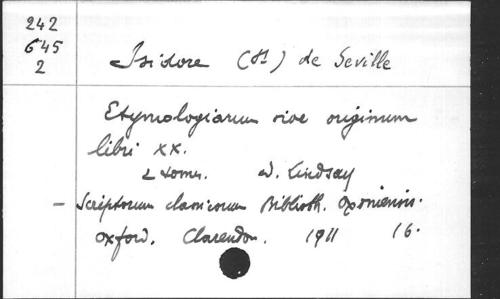 242
645
2
Isidore (St) de Seville
Etymologiarum sive originum
libri XX.
2 tomes. W. Lindsay
- Scriptorum classicorum Biblioth. Oxoniensis.
Oxford. Clarendon. 1911 16.